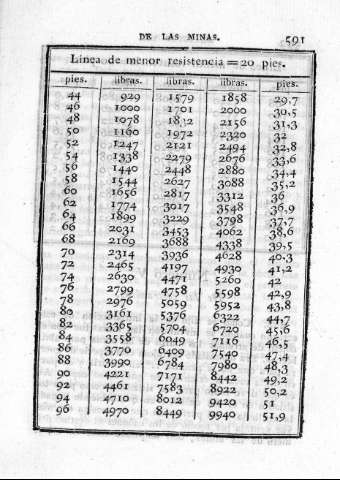 DE LAS MINAS. 591
Linea de menor resistencia = 20 pies.
pies. libras. libras. libras. pies.
44 929 1579 1858 29,7
46 1000 1701 2000 30,5
48 1078 1832 2156 31,3
50 1160 1972 2320 32
52 1247 2121 2494 32,8
54 1338 2279 2676 33,6
56 1440 2448 2880 34,4
58 1544 2627 3088 35,2
60 1656 2817 3312 36
62 1774 3017 3548 36,9
64 1899 3229 3798 37,7
66 2031 3453 4062 38,6
68 2169 3688 4338 39,5
70 2314 3936 4628 40,3
72 2465 4197 4930 41,2
74 2630 4471 5260 42
76 2799 4758 5598 42,9
78 2976 5059 5952 43,8
80 3161 5376 6322 44,7
82 3365 5704 6720 45,6
84 3558 6049 7116 46,5
86 3770 6409 7540 47,4
88 3990 6784 7980 48,3
90 4221 7171 8442 49,2
92 4461 7583 8922 50,2
94 4710 8012 9420 51
96 4970 8449 9940 51,9